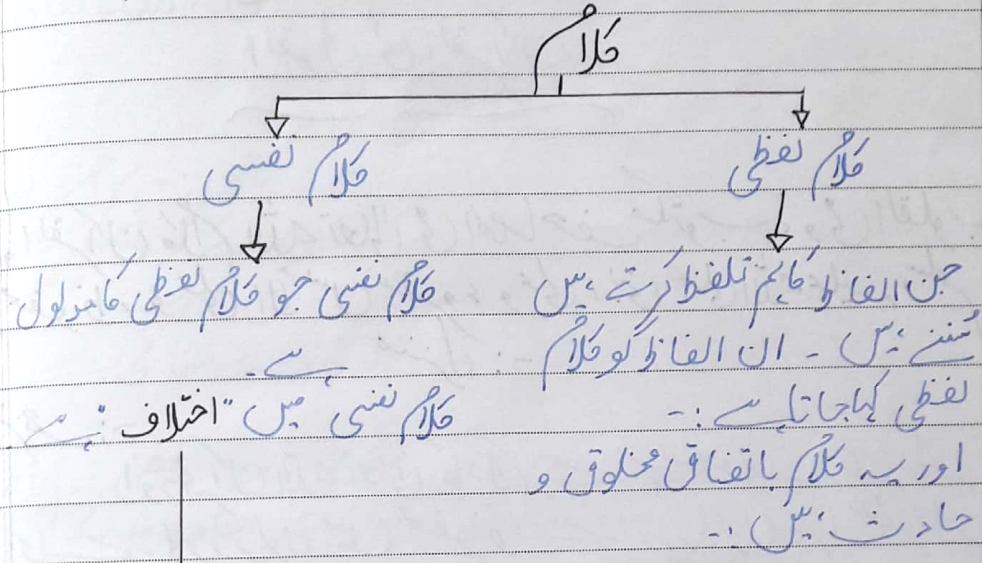 کلام
کلام لفظی
کلام نفسی
جن الفاظ کا ہم تلفظ کرتے ہیں
سنتے ہیں ۔ ان الفاظ کو کلام
لفظی کہا جاتا ہے :-
اور یہ کلام باتفاق مخلوق و
حادث ہیں :-
کلام نفسی جو کلام لفظی کا مدلول
ہے ۔
کلام نفسی میں "اختلاف" ہے